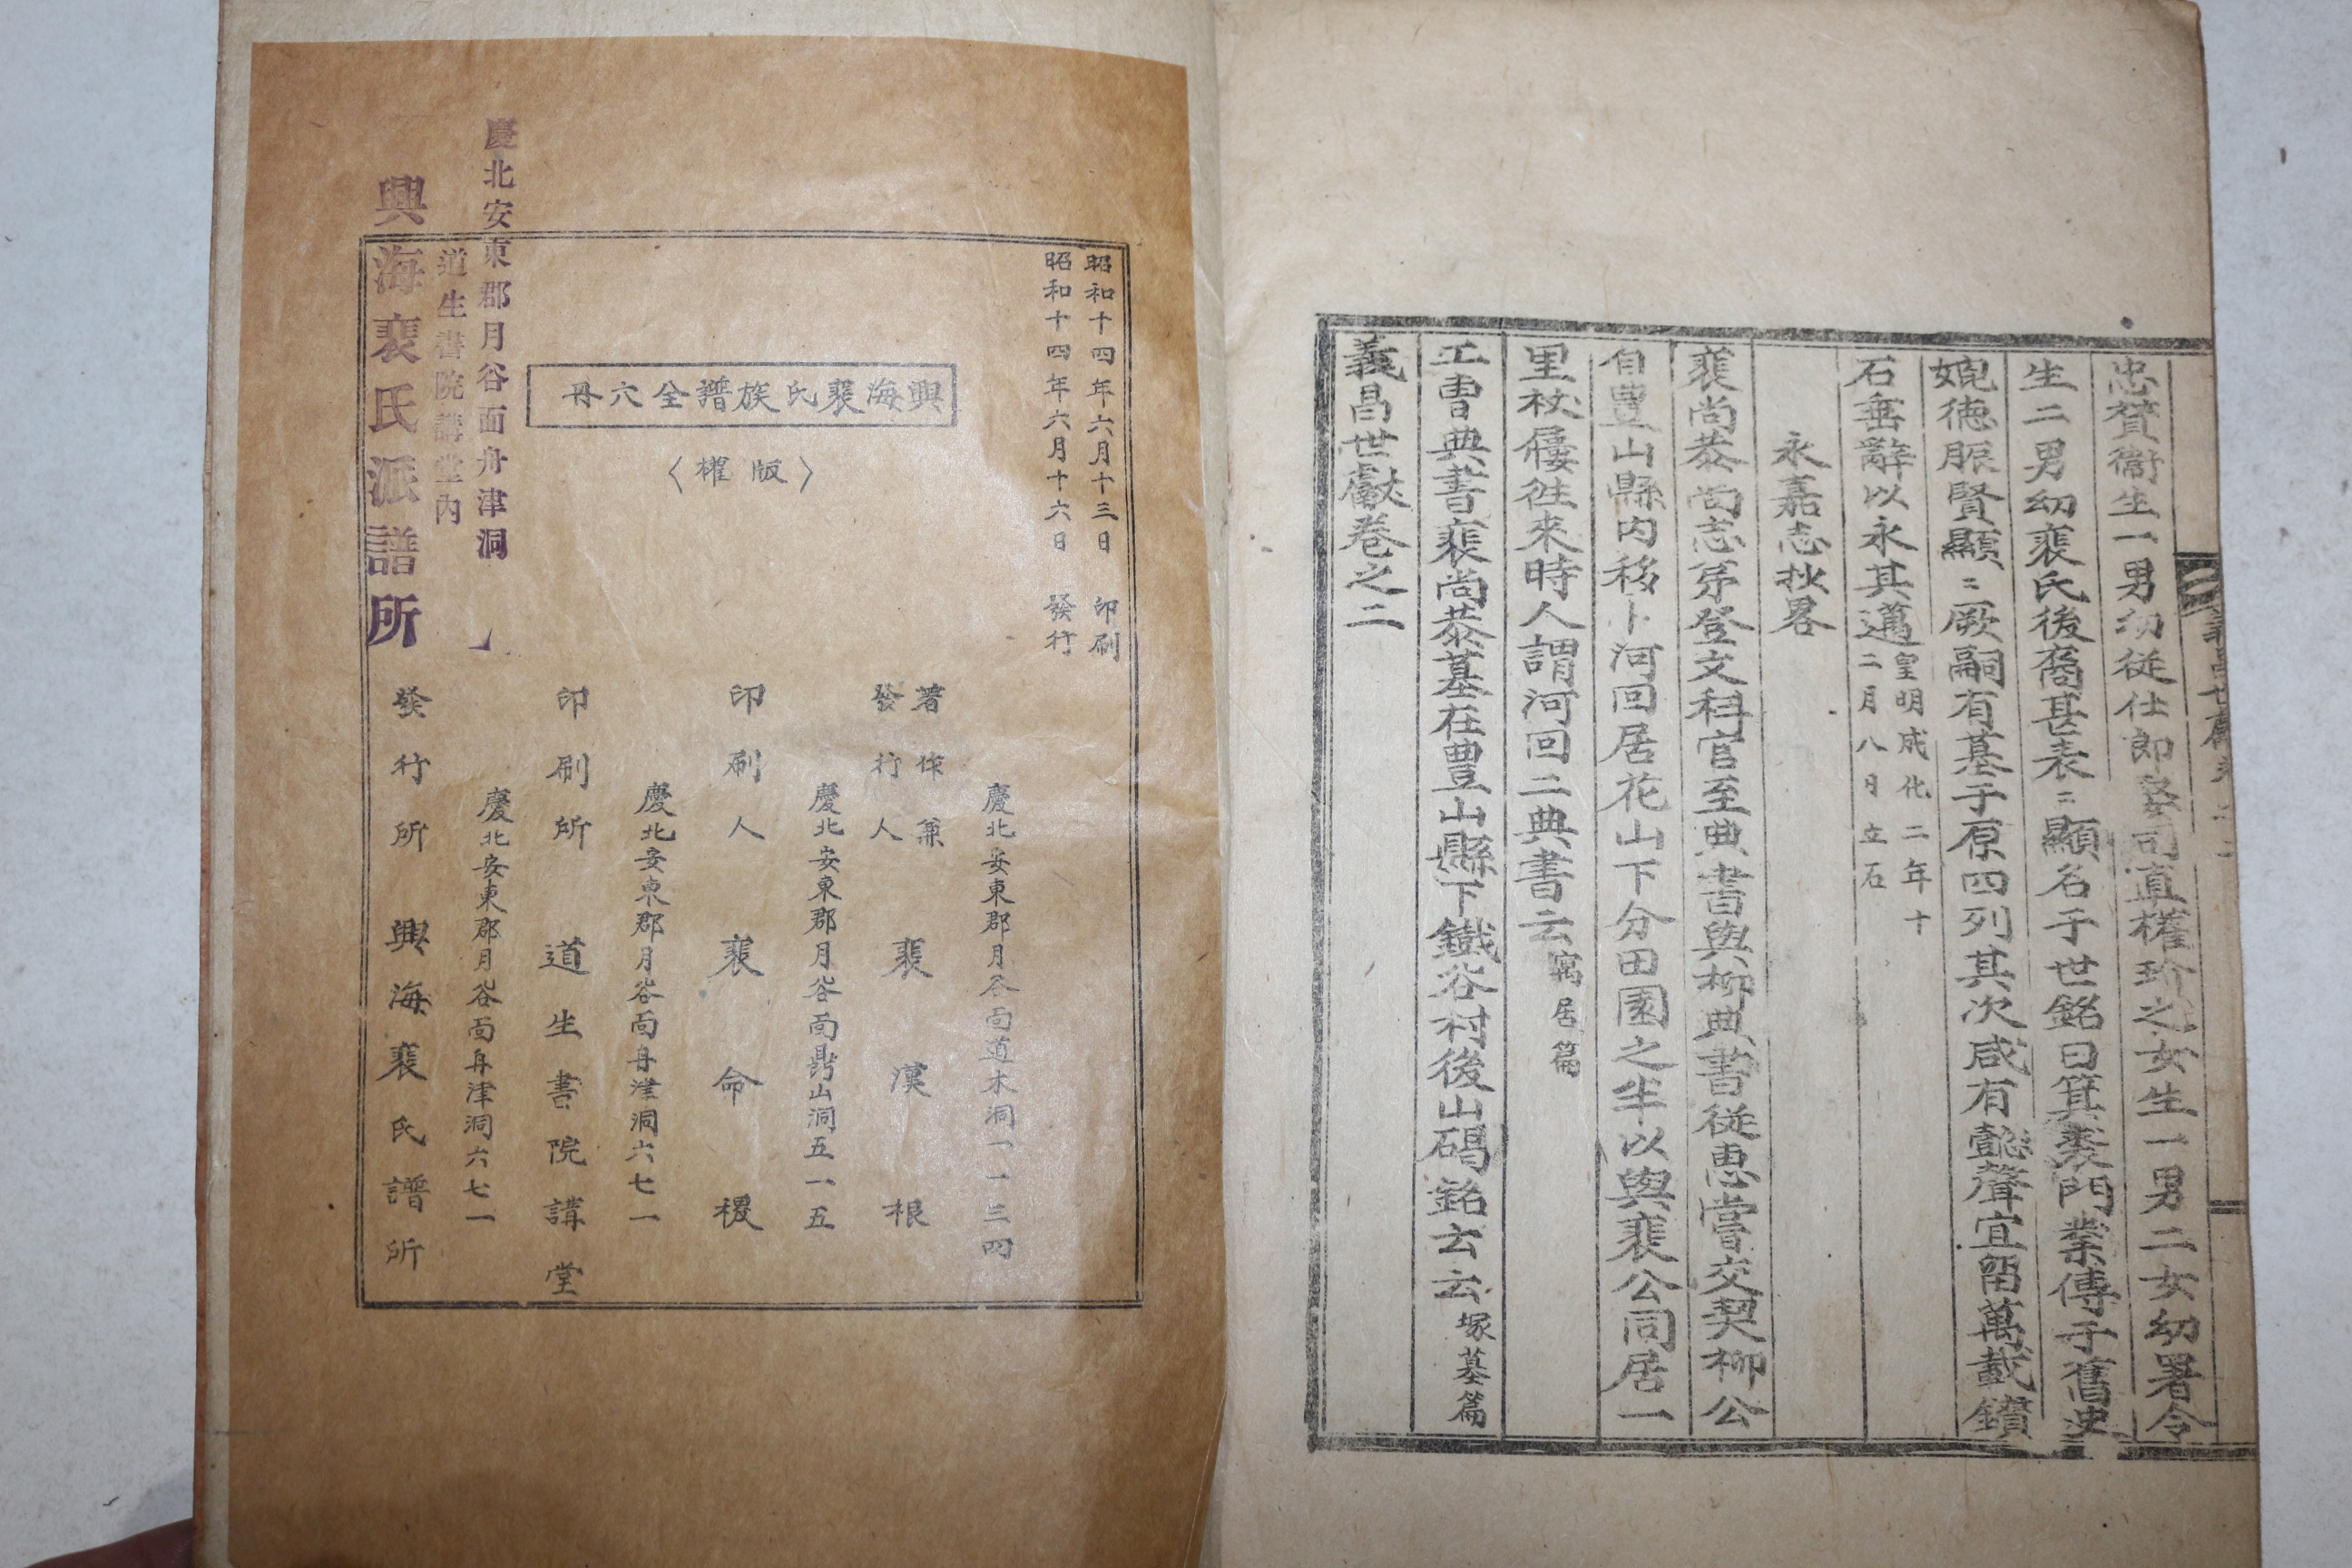 忠贊衛生一男幼從仕郎娶司直權珍之女生一男二女幼署令
生二男幼裵氏後裔甚表〻顯名于世銘曰箕裘門業傳子舊史
娓徳賑賢顯〻厥嗣有墓于原四列其次咸有懿聲宜留萬載鑽
石垂辭以永其邁皇明成化二年十
二月八日立石
永嘉志抄畧
裵尚恭尚志苐登文科官至典書與柳典書從惠嘗交契柳公
自豊山縣内移卜河回居花山下分田園之半以與裵公同居一
里杖屨徃来時人謂河回二典書云寓居篇
工曺典書裵尚恭墓在豊山縣下鐵谷村後山碣銘云云塚墓篇
義昌世獻卷之二
昭和十四年六月十三日 印刷
昭和十四年六月十六日 發行
興海裵氏族譜全六冊
〈版權〉
慶北安東郡月谷面道木洞一一三四
著作兼
發行人 裵漢根
慶北安東郡月谷面鼎山洞五一五
印刷人 裵命稷
慶北安東郡月谷面舟津洞六七一
印刷所 道生書院講堂
慶北安東郡月谷面舟津洞六七一
發行所 興海裵氏譜所
慶北安東郡月谷面舟津洞
道生書院講堂內
興海裵氏派譜所